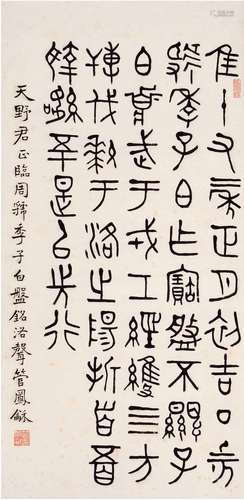 隹十又二年正月初吉丁亥
虢季子白乍寶盤不顯子
白壯武于戎工經維四方
搏伐于洛之陽折首五百
執訊五十是以先行
天野君正臨周虢季子白盤銘洛聲管鳳龢